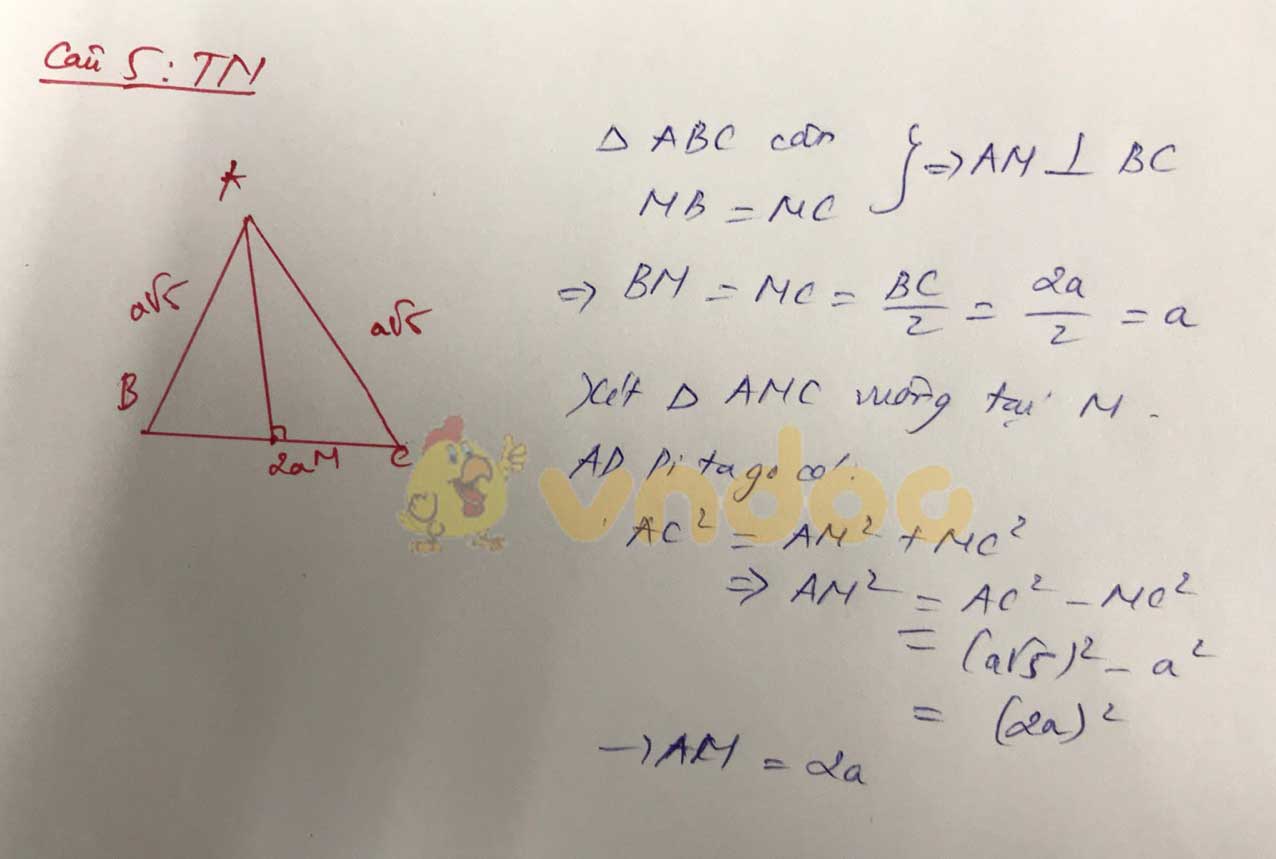 Câu 5: TN
A
a√5
a√5
B
2a M
C
Δ ABC cân
MB = MC
} => AM ⊥ BC
=> BM = MC = BC/2 = 2a/2 = a
Xét Δ AMC vuông tại M.
AD Pi ta go có:
AC² = AM² + MC²
=> AM² = AC² - MC²
= (a√5)² - a²
= (2a)²
→ AM = 2a
vndoc